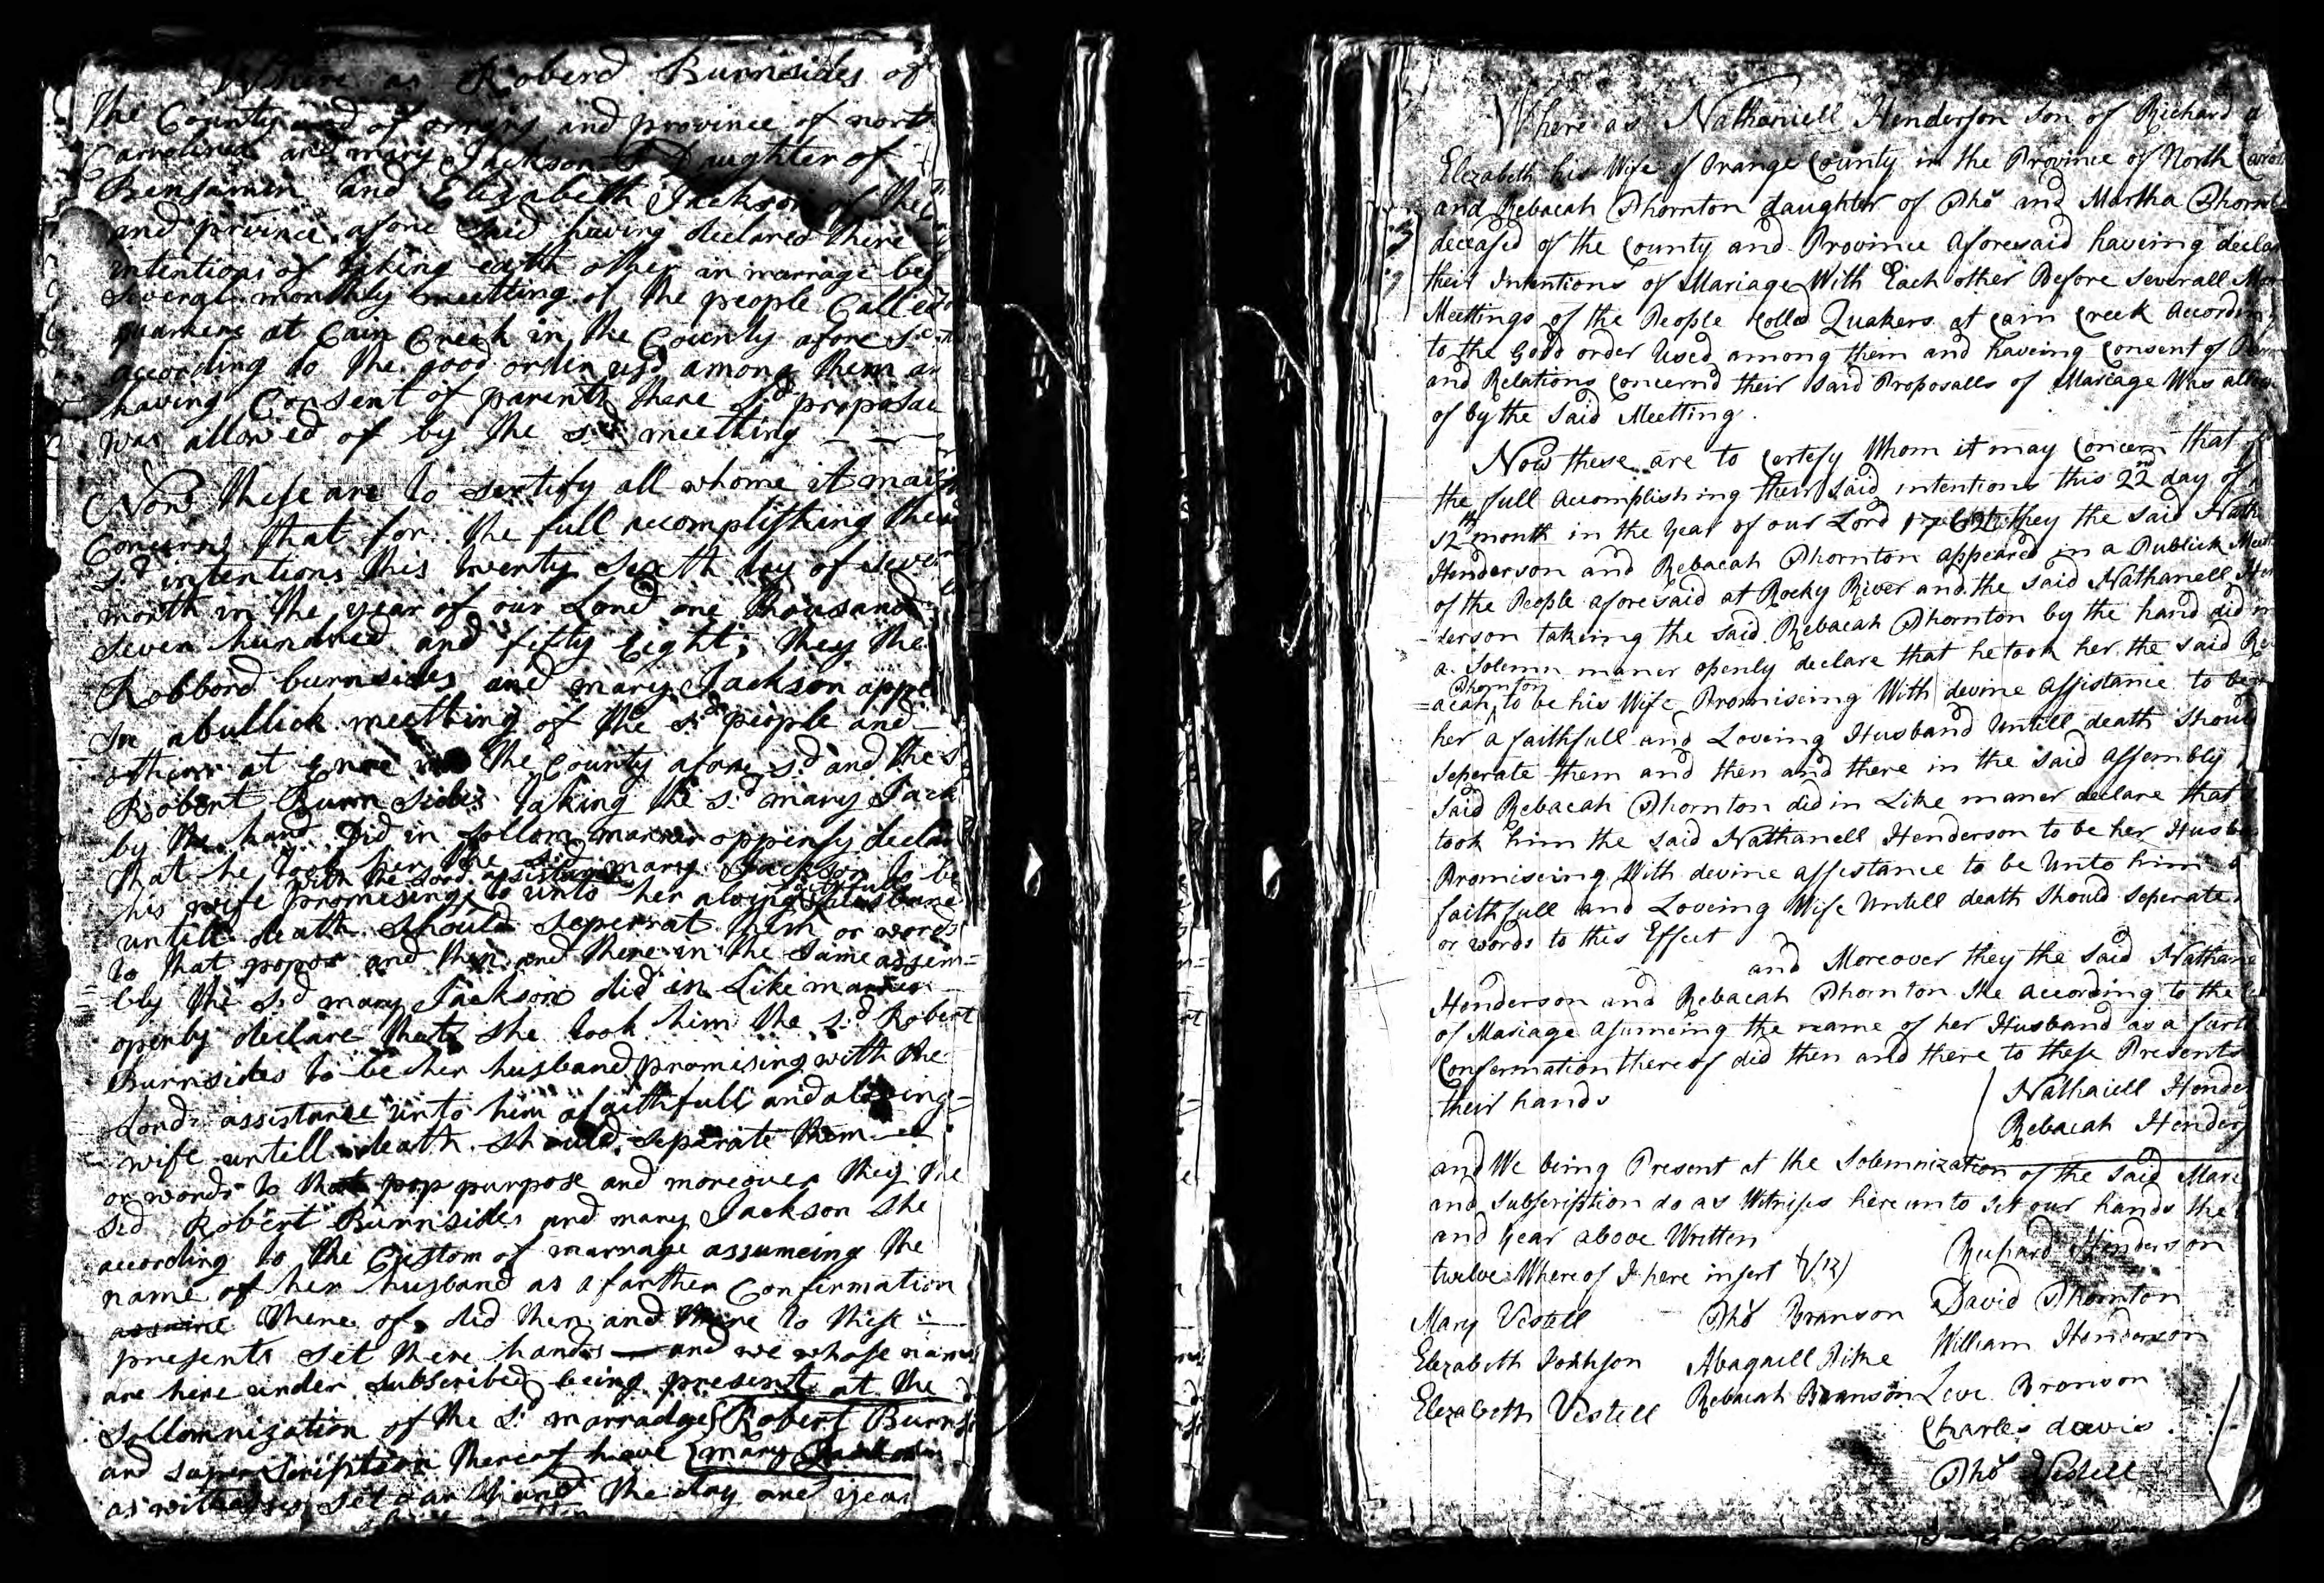 Where as Roberd Burnsides of
the County and of orrings and province of north
Carrolina and mary Jackson Daughter of
Benjamin and Elizabeth Jackson of the
and province afore said having declared there
intentions of taking eatch other in marriage bef
several monthly meetting of the people Called
quarkers at Cain Creek in the County afore sd
according to the good order usd among them an
having Consent of parents there sd proposal
was allowed of by the sd meetting
Now these are to sertify all whome it may
Concern that for the full accomplishing their
sd intentions this twenty sixth day of seven
month in the year of our Lord one thousand
seven hundred and fifty Eight, they the
Robbord burnsides and mary Jackson appe
In abullick meetting of the sd people and
others at Enoe the County afore sd and the s
Robert Burnsides taking the sd mary Jack
by the hand did in sollom manner oppenly declar
that he took her the sd mary Jackson to be
with the Lords assistance faithfull
his wife promising to unto her aloving husband
untill death should seperrat them or words
to that popos and then and there in the same assem=
bly the sd mary Jackson did in Like manner
openly declare that she took him the sd Robert
Burnsides to be her husband promising with the
Lords assistance unto him afaithfull and aloving=
wife untill death should seperate them
or words to that pop purpose and moreover they the
sed Robert Burnsides and mary Jackson she
according to the Custom of marriage assumeing the
name of her husband as a farther Confirmation
assume there of did then and there to these
presents set there hands and we whose names
are here under subscribed being present at the
sollomnization of the sd marradge Robert Burns
and superscription thereof have mary
as witnesses set our hand the day and year
Where as Nathaniell Henderson son of Richard a
Elezabeth his Wife of Orange County in the Province of North Caro
and Rebacah Thornton daughter of Tho and Martha Thornt
deceased of the County and Province Aforesaid haveing declar
their Intentions of Mariage With Each other Before severall Mon
Meettings of the People Colled Quakers at Cain Creek According
to the Good order Used among them and haveing Consent of Par
and Relations Concernd their said Proposalls of Mareage Was allow
of by the Said Meetting.
Now these are to Certefy Whom it may Concern that f
the full Accomplishing their said intentions this 22nd day of
12th month in the year of our Lord 1762 they the said Nath
Henderson and Rebacah Thornton appeared in a Publick Meet
of the People aforesaid at Rocky River and the said Nathanell Hen
-derson takeing the said Rebacah Thornton by the hand did in
a Solemn maner openly declare that he took her the said Reb
Thornton
=acah to be his Wife Promiseing With devine assistance to be
her a faithfull and Loveing Husband Untill death Should
Seperate them and then and there in the said Assembly
Said Rebacah Thornton did in Like maner declare that
took him the said Nathanell Henderson to be her Husba
Promiseing With devine assistance to be Unto him a
faithfull and Loveing Wife Untill death should Seperate
or words to this Effect
and Moreover they the said Nathane
Henderson and Rebacah Thornton She According to the
of Mariage Asumeing the name of her Husband as a furt
Confermation there of did then and there to these Presents
their hands
Nathaiell Hender
Rebacah Hender
and We being Present at the Solemnization of the said Mare
and Subscription do as Witnesses here unto Set our hands the
and year above Written
twelve Where of I here insert (12)
Richard Henderson
Mary Vestell Tho Branson David Thornton
Elezabeth Johhson Abagaill Pike William Henderson
Elezabeth Vestell Rebacah Branson Leve Branson
Charles davis
Tho Vestell